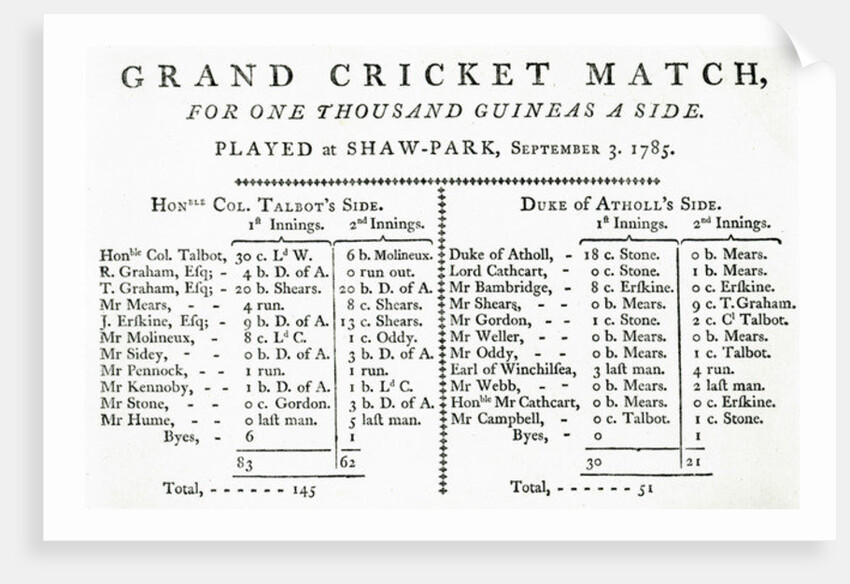 GRAND CRICKET MATCH,
FOR ONE THOUSAND GUINEAS A SIDE.
PLAYED at SHAW-PARK, SEPTEMBER 3. 1785.
HONBLE COL. TALBOT'S SIDE.
1ſt Innings. 2nd Innings.
Honble Col. Talbot, 30 c. Ld W. 6 b. Molineux.
R. Graham, Eſq; - 4 b. D. of A. 0 run out.
T. Graham, Eſq; - 20 b. Shears. 20 b. D. of A.
Mr Mears, - - 4 run. 8 c. Shears.
J. Erſkine, Eſq; - 9 b. D. of A. 13 c. Shears.
Mr Molineux, - 8 c. Ld C. 1 c. Oddy.
Mr Sidey, - - 0 b. D. of A. 3 b. D. of A.
Mr Pennock, - - 1 run. 1 run.
Mr Kennoby, - - 1 b. D. of A. 1 b. Ld C.
Mr Stone, - - 0 c. Gordon. 3 b. D. of A.
Mr Hume, - - 0 laſt man. 5 laſt man.
Byes, - 6 1
83 62
Total, - - - - - - 145
DUKE of ATHOLL'S SIDE.
1ſt Innings. 2nd Innings.
Duke of Atholl, - 18 c. Stone. 0 b. Mears.
Lord Cathcart, - 0 c. Stone. 1 b. Mears.
Mr Bambridge, - 8 c. Erſkine. 0 c. Erſkine.
Mr Shears, - - 0 b. Mears. 9 c. T. Graham.
Mr Gordon, - - 1 c. Stone. 2 c. Cl Talbot.
Mr Weller, - - 0 b. Mears. 0 b. Mears.
Mr Oddy, - - 0 b. Mears. 1 c. Talbot.
Earl of Winchilſea, 3 laſt man. 4 run.
Mr Webb, - - 0 b. Mears. 2 laſt man.
Honble Mr Cathcart, 0 b. Mears. 0 c. Erſkine.
Mr Campbell, - 0 c. Talbot. 1 c. Stone.
Byes, - 0 1
30 21
Total, - - - - - - 51